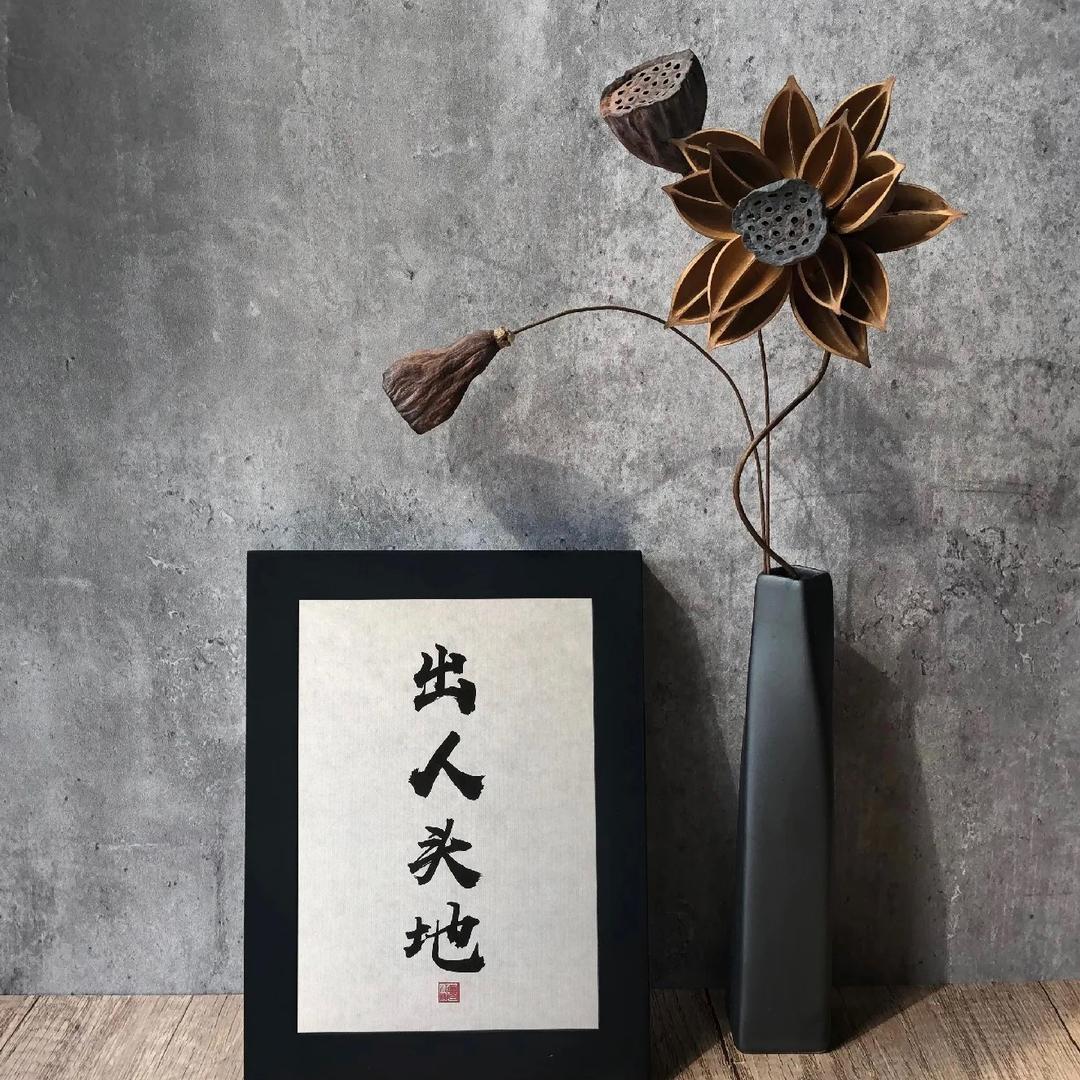 出人头地